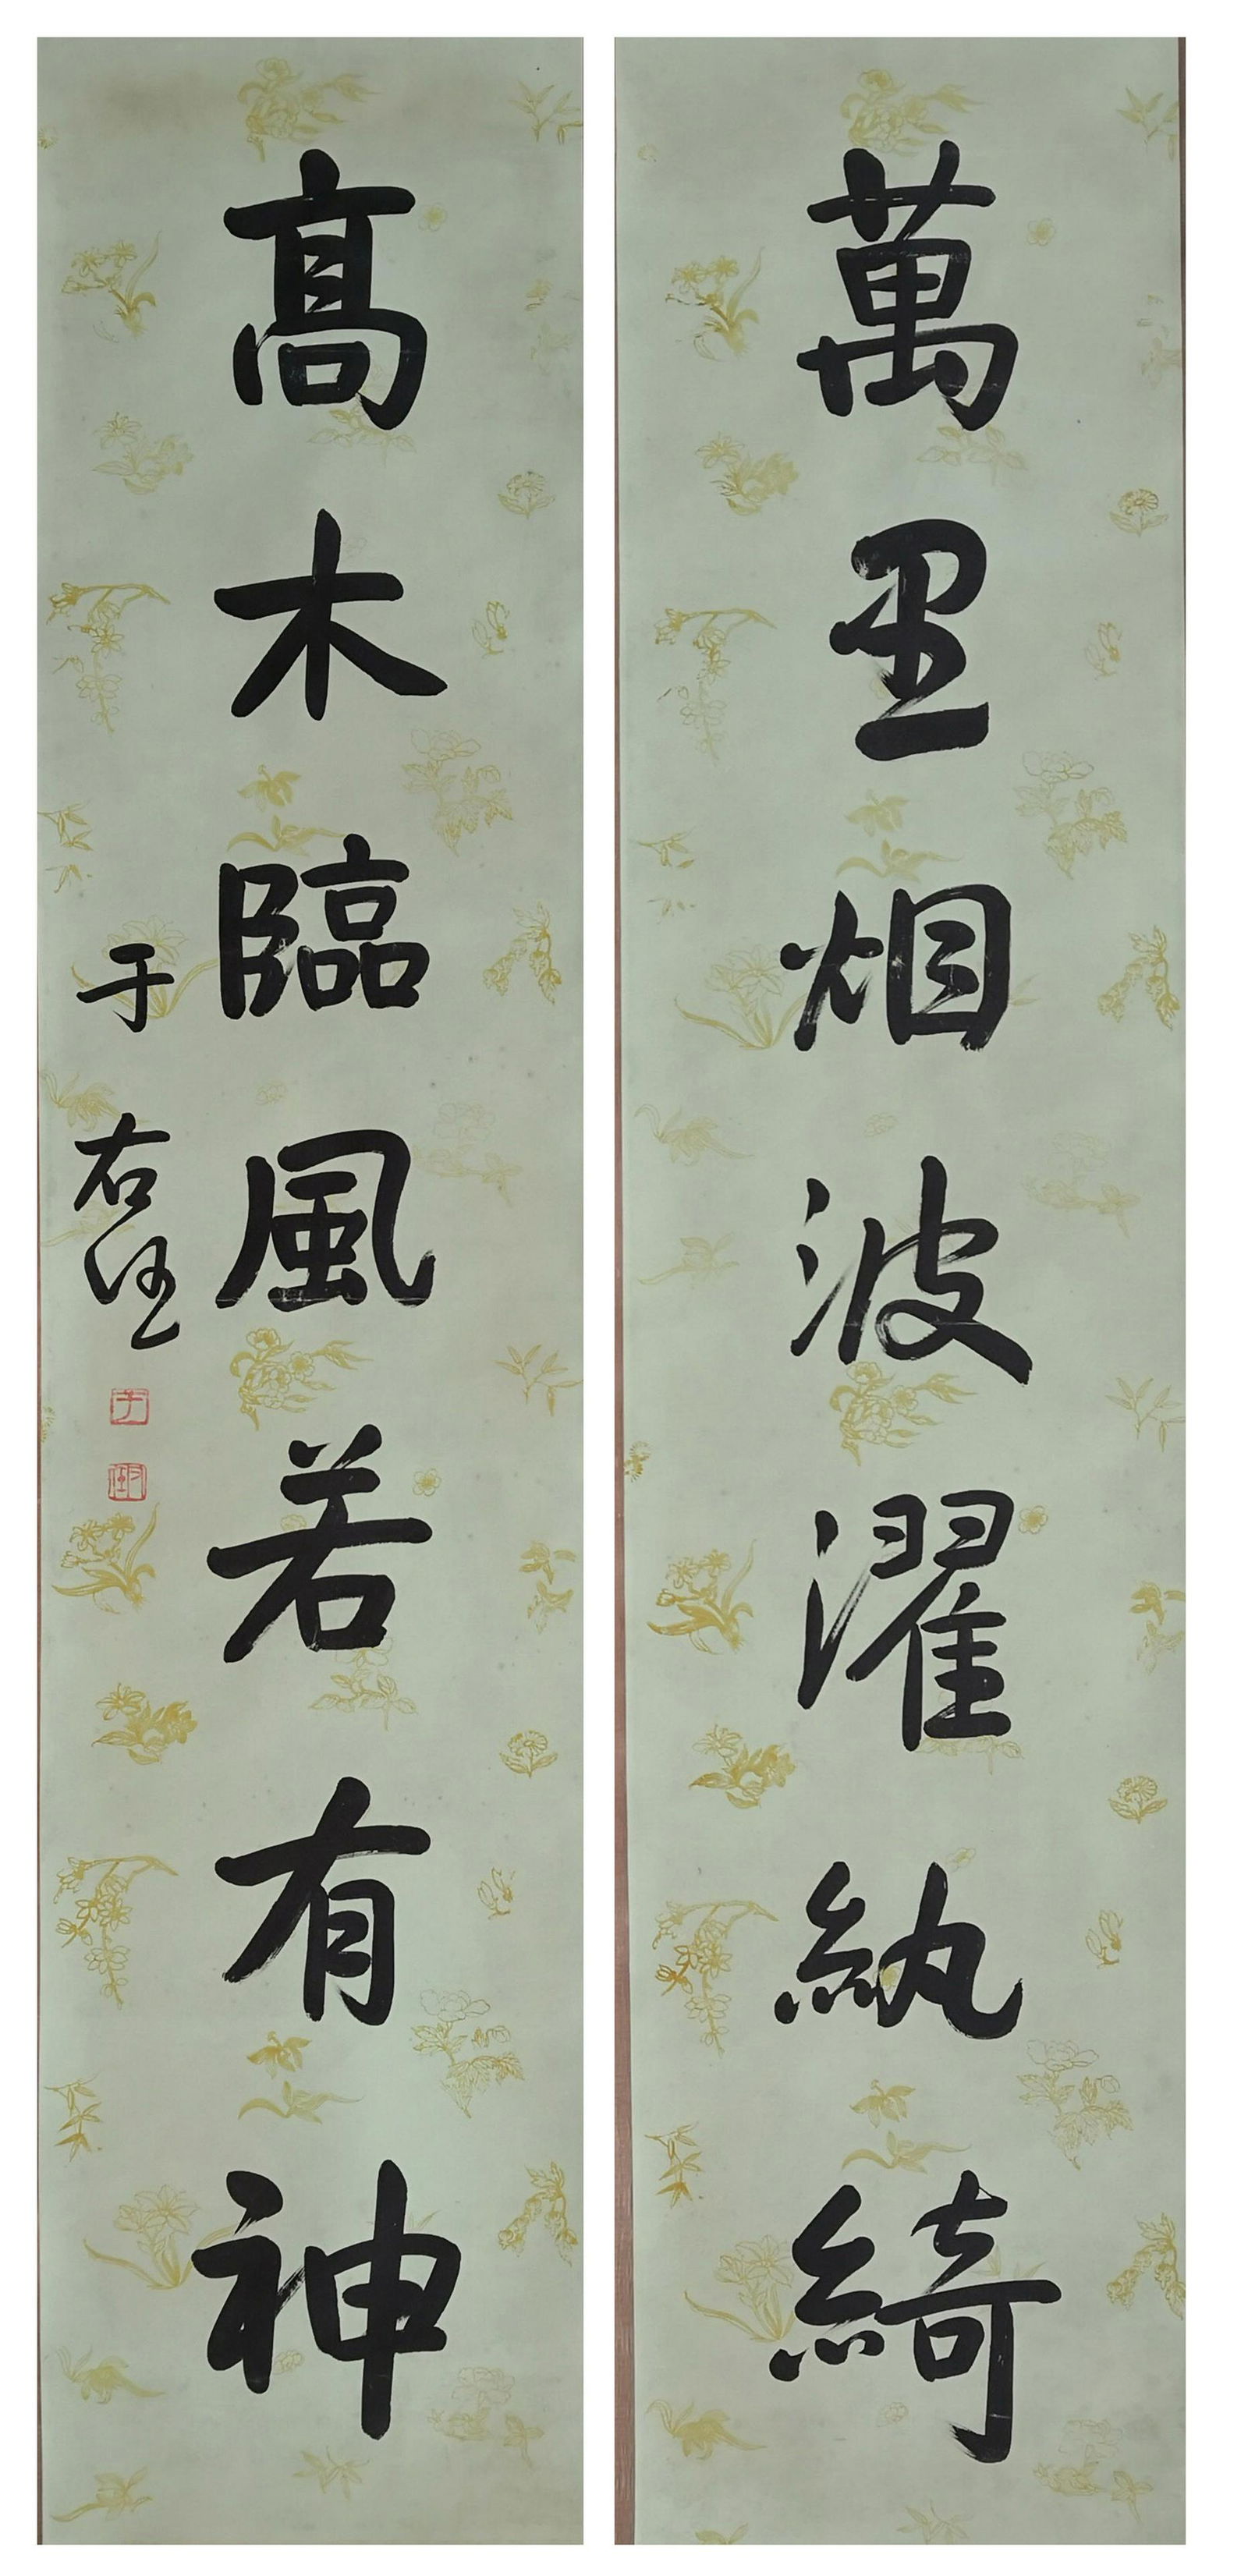 萬里烟波濯紈綺
高木臨風若有神
于右任